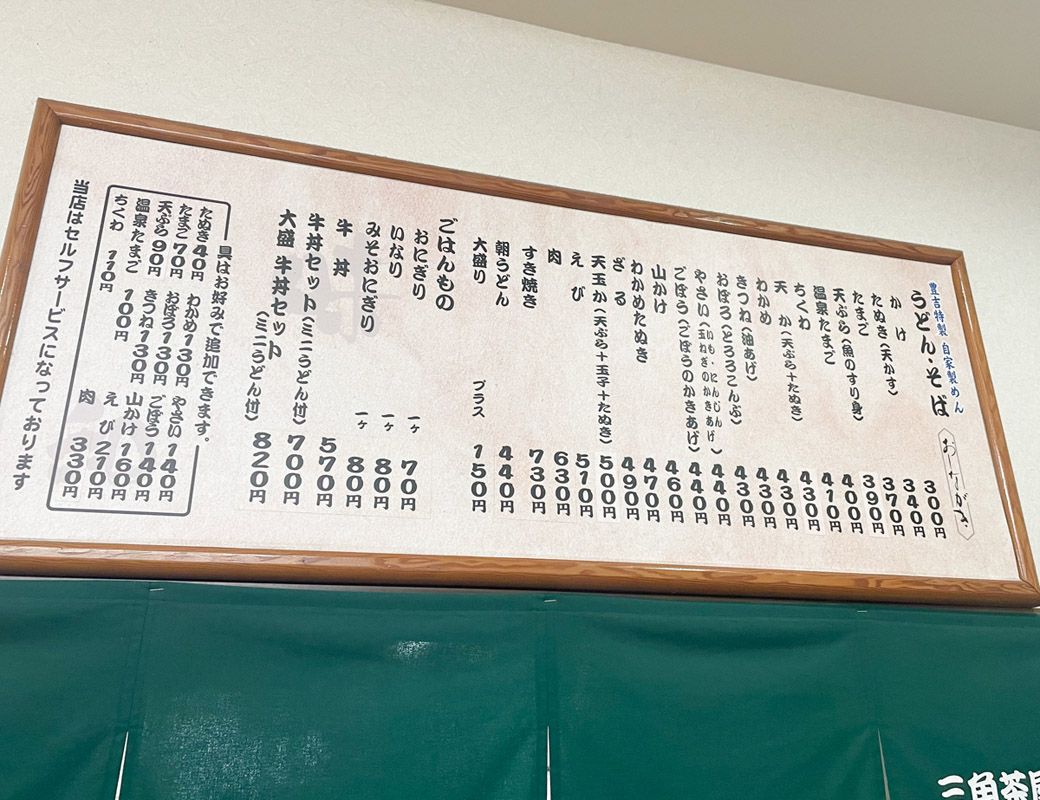 豊吉特製 自家製めん
うどん・そば
おしながき
かけ 300円
たぬき(天かす) 340円
たまご 370円
天ぷら(魚のすり身) 390円
温泉たまご 400円
ちくわ 410円
天か(天ぷら+たぬき) 430円
わかめ 430円
きつね(油あげ) 430円
おぼろ(とろろこんぶ) 430円
やさい(いも・にんじん 玉ねぎのかきあげ) 440円
ごぼう(ごぼうのかきあげ) 440円
山かけ 460円
わかめたぬき 470円
ざる 490円
天玉か(天ぷら+玉子+たぬき) 500円
えび 510円
肉 630円
すき焼き 730円
朝うどん 440円
大盛り プラス 150円
ごはんもの
おにぎり 一ヶ 70円
いなり 一ヶ 80円
みそおにぎり 一ヶ 80円
牛丼 570円
牛丼セット(ミニうどん付) 700円
大盛 牛丼セット(ミニうどん付) 820円
具はお好みで追加できます。
たぬき40円 わかめ130円 やさい140円
たまご70円 おぼろ130円 ごぼう140円
天ぷら90円 きつね130円 山かけ160円
温泉たまご 100円 えび210円
ちくわ 110円 肉 330円
当店はセルフサービスになっております
三角茶屋